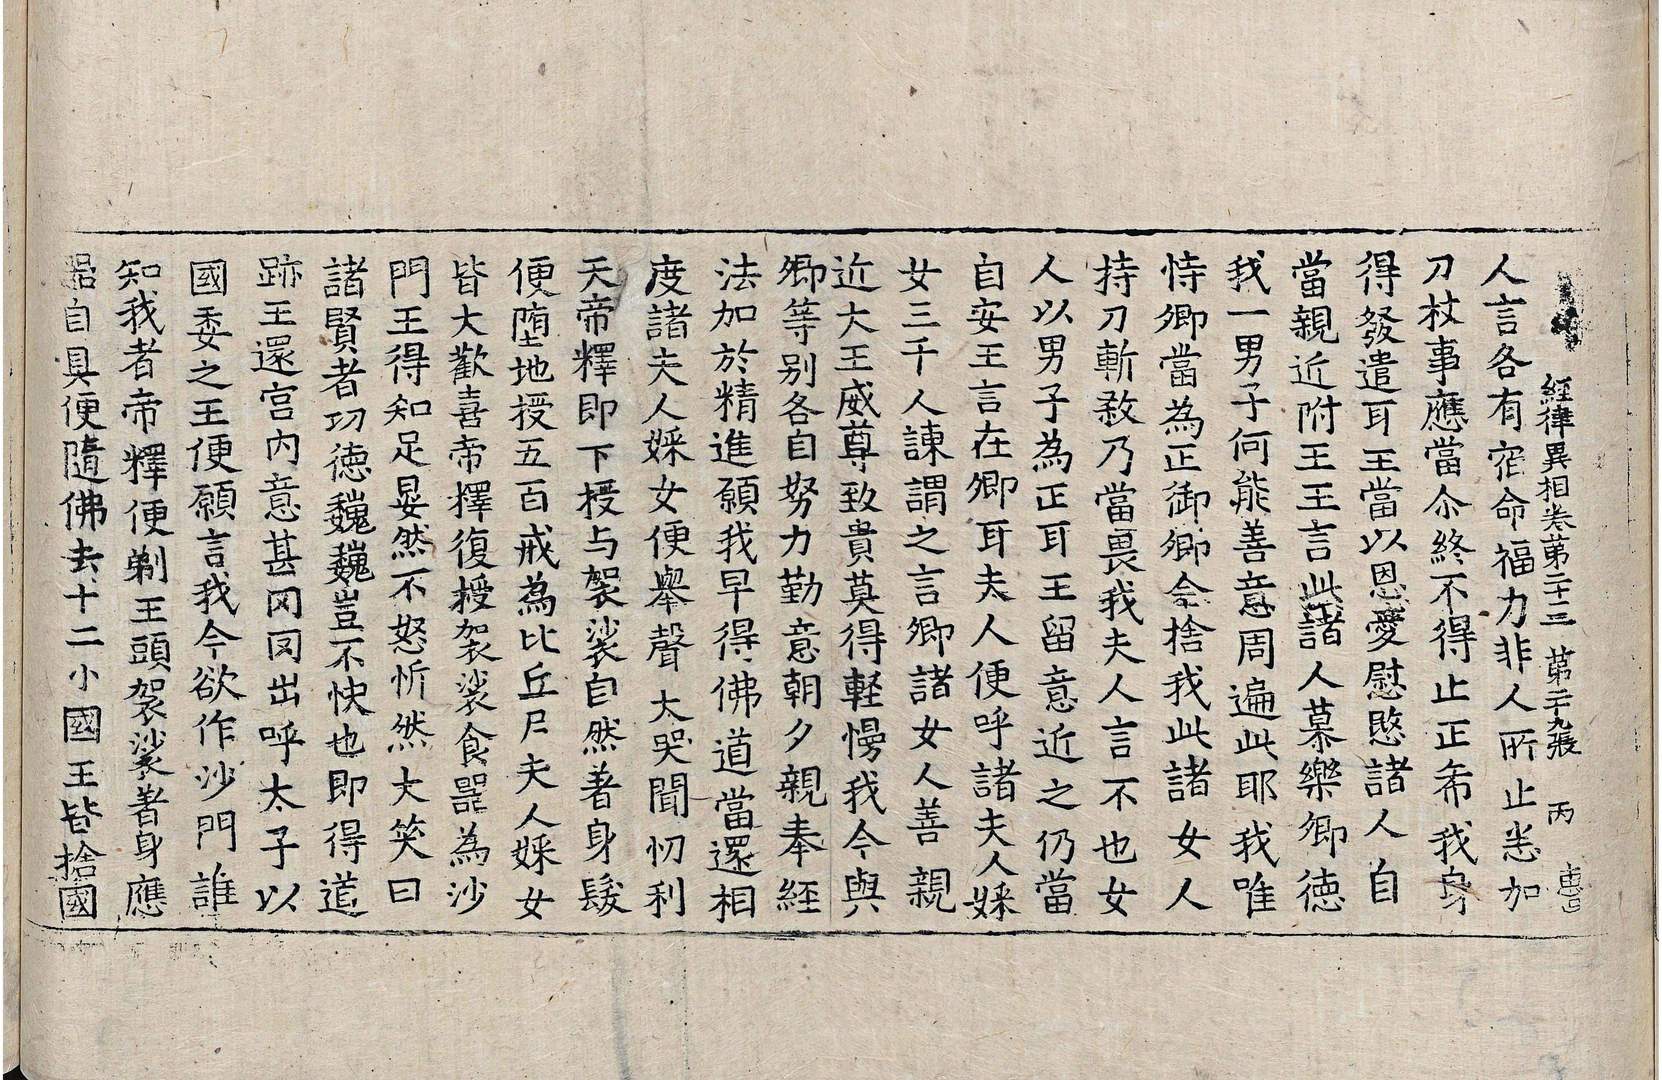 經律異相卷第二十三 第二十九張 丙
人言各有宿命福力非人所止恙加
刀杖事應當尒終不得止正希我身
得發遣耳王當以恩愛慰愍諸人自
當親近附王王言此諸人慕樂卿德
我一男子何能善意周遍此耶我唯
恃卿當為正御卿今捨我此諸女人
持刀斬敹乃當畏我夫人言不也女
人以男子為正耳王留意近之仍當
自安王言在卿耳夫人便呼諸夫人婇
女三千人諫謂之言卿諸女人善親
近大王威尊致貴莫得軽慢我今與
卿等別各自努力勤意朝夕親奉經
法加於精進願我早得佛道當還相
度諸夫人婇女便舉聲大哭聞忉利
天帝釋即下授与袈裟自然著身髮
便墮地授五百戒為比丘尼夫人婇女
皆大歡喜帝釋復授袈裟食器為沙
門王得知足晏然不怒忻然大笑曰
諸賢者功徳魏魏豈不快也即得道
跡王還宫内意甚罔罔出呼太子以
國委之王便願言我今欲作沙門誰
知我者帝釋便剃王頭袈裟著身應
器自具便隨佛去十二小國王皆捨國